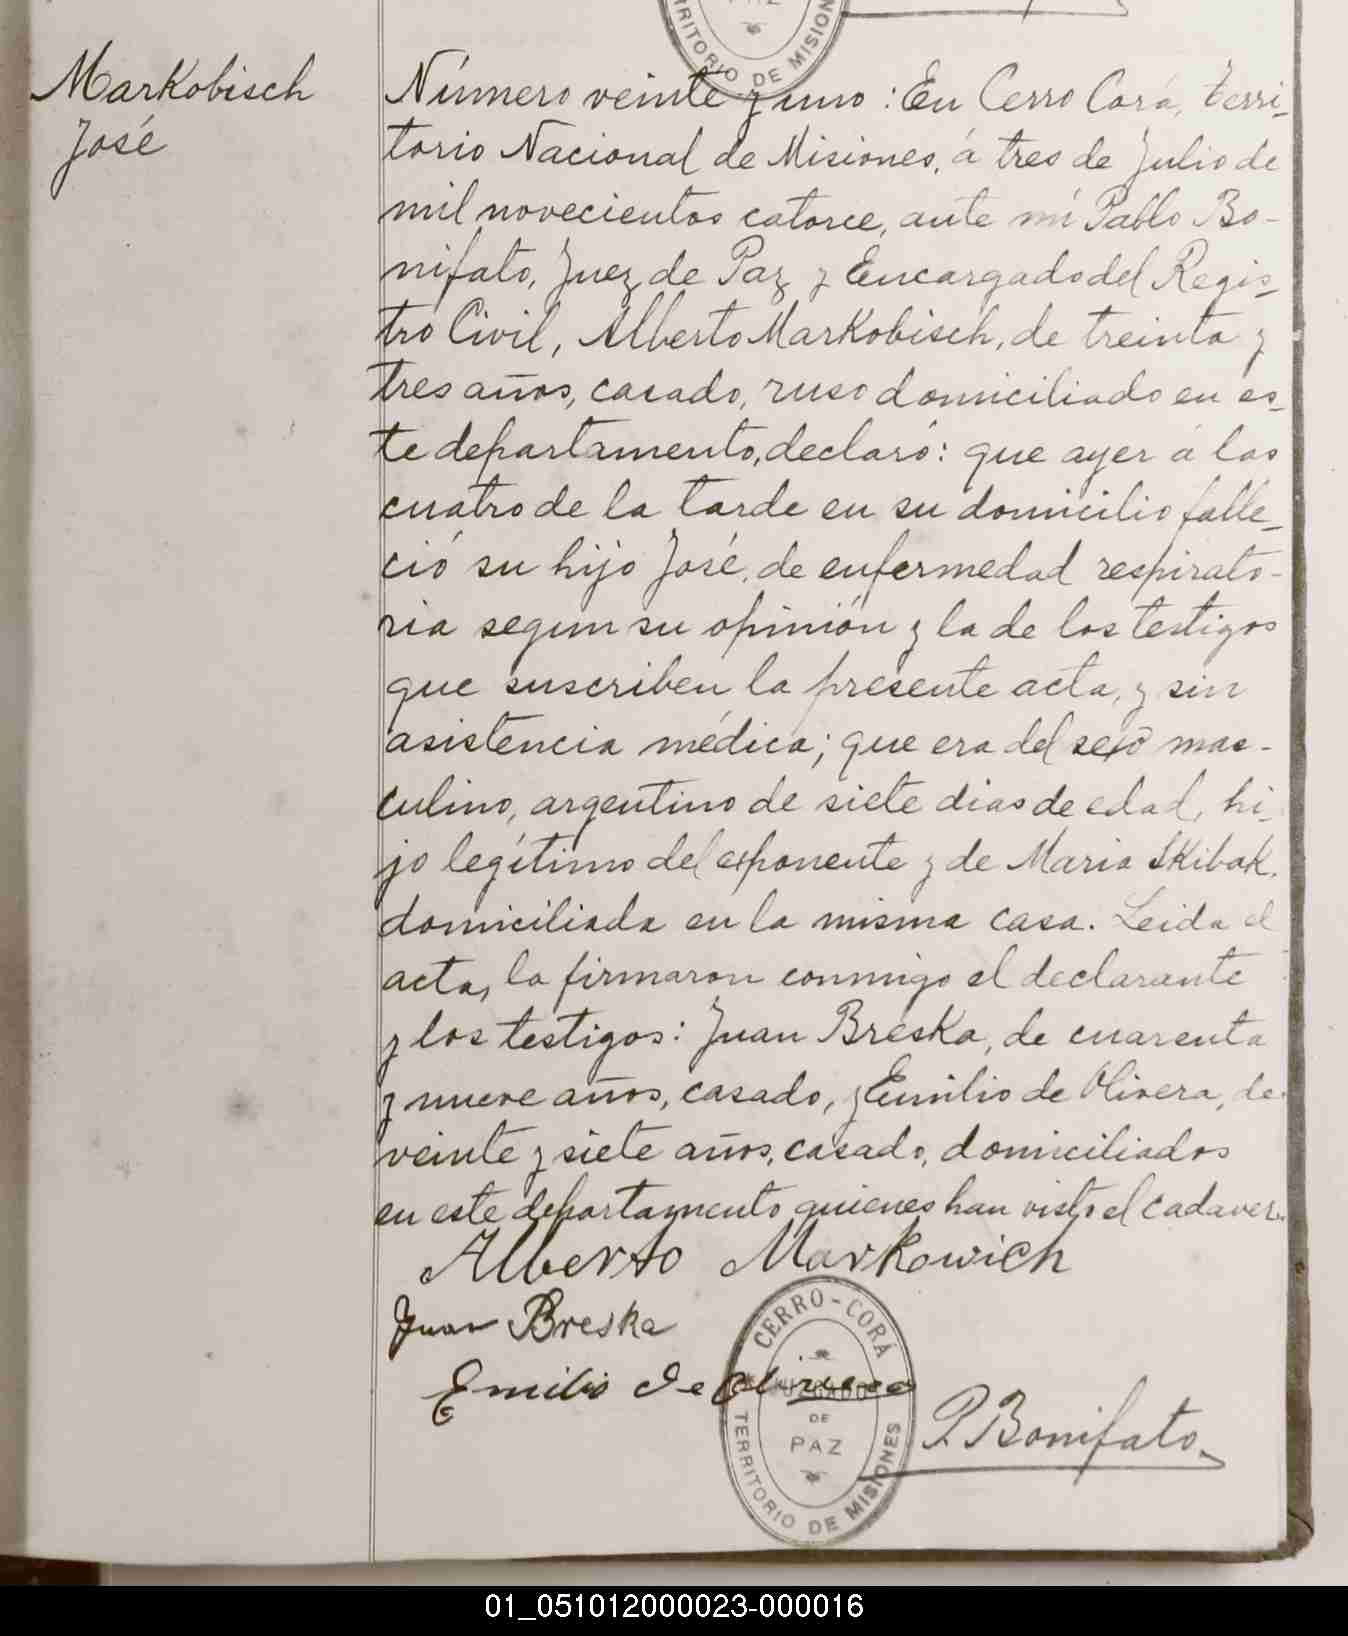 TERRITORIO DE MISIONES
PAZ
Markobisch
José
Número veinte y uno: En Cerro Corá, terri-
torio Nacional de Misiones, á tres de Julio de
mil novecientos catorce, ante mí Pablo Bo-
nifato, Juez de Paz y Encargado del Regis-
tro Civil, Alberto Markobisch, de treinta y
tres años, casado, ruso domiciliado en es-
te departamento, declaró: que ayer á las
cuatro de la tarde en su domicilio falle-
ció su hijo José, de enfermedad respirato-
ria segun su opinión y la de los testigos
que suscriben la presente acta, y sin
asistencia médica; que era del sexo mas-
culino, argentino de siete dias de edad, hi-
jo legítimo del exponente y de Maria Skibak,
domiciliada en la misma casa. Leida el
acta, la firmaron conmigo el declarante
y los testigos: Juan Breska, de cuarenta
y nueve años, casado, y Emilio de Olivera, de
veinte y siete años, casado, domiciliados
en este departamento quienes han visto el cadaver.
Alberto Markowich
Juan Breska
Emilio de Olivera
CERRO-CORÁ
JUZGADO
DE
PAZ
TERRITORIO DE MISIONES
P. Bonifato
01_051012000023-000016